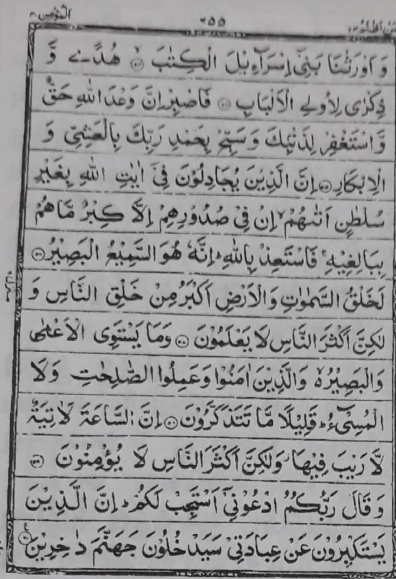 المؤمن ۴۰ ۶۵۵ فمن اظلم ۲۴
وَ اَوْرَثْنَا بَنِیْۤ اِسْرَآءِیْلَ الْكِتٰبَ ۙ هُدًی وَّ
ذِكْرٰی لِاُولِی الْاَلْبَابِ فَاصْبِرْ اِنَّ وَعْدَ اللّٰهِ حَقٌّ
وَّ اسْتَغْفِرْ لِذَنْۢبِكَ وَ سَبِّحْ بِحَمْدِ رَبِّكَ بِالْعَشِیِّ وَ
الْاِبْكَارِ اِنَّ الَّذِیْنَ یُجَادِلُوْنَ فِیْۤ اٰیٰتِ اللّٰهِ بِغَیْرِ
سُلْطٰنٍ اَتٰىهُمْ ۙ اِنْ فِیْ صُدُوْرِهِمْ اِلَّا كِبْرٌ مَّا هُمْ
بِبَالِغِیْهِ ۚ فَاسْتَعِذْ بِاللّٰهِ ؕ اِنَّهٗ هُوَ السَّمِیْعُ الْبَصِیْرُ
لَخَلْقُ السَّمٰوٰتِ وَ الْاَرْضِ اَكْبَرُ مِنْ خَلْقِ النَّاسِ وَ
لٰكِنَّ اَكْثَرَ النَّاسِ لَا یَعْلَمُوْنَ وَ مَا یَسْتَوِی الْاَعْمٰی
وَ الْبَصِیْرُ ۙ۬ وَ الَّذِیْنَ اٰمَنُوْا وَ عَمِلُوا الصّٰلِحٰتِ وَ لَا
الْمُسِیْٓءُ ؕ قَلِیْلًا مَّا تَتَذَكَّرُوْنَ اِنَّ السَّاعَةَ لَاٰتِیَةٌ
لَّا رَیْبَ فِیْهَا ؗ وَ لٰكِنَّ اَكْثَرَ النَّاسِ لَا یُؤْمِنُوْنَ
وَ قَالَ رَبُّكُمُ ادْعُوْنِیْۤ اَسْتَجِبْ لَكُمْ ؕ اِنَّ الَّذِیْنَ
یَسْتَكْبِرُوْنَ عَنْ عِبَادَتِیْ سَیَدْخُلُوْنَ جَهَنَّمَ دٰخِرِیْنَ